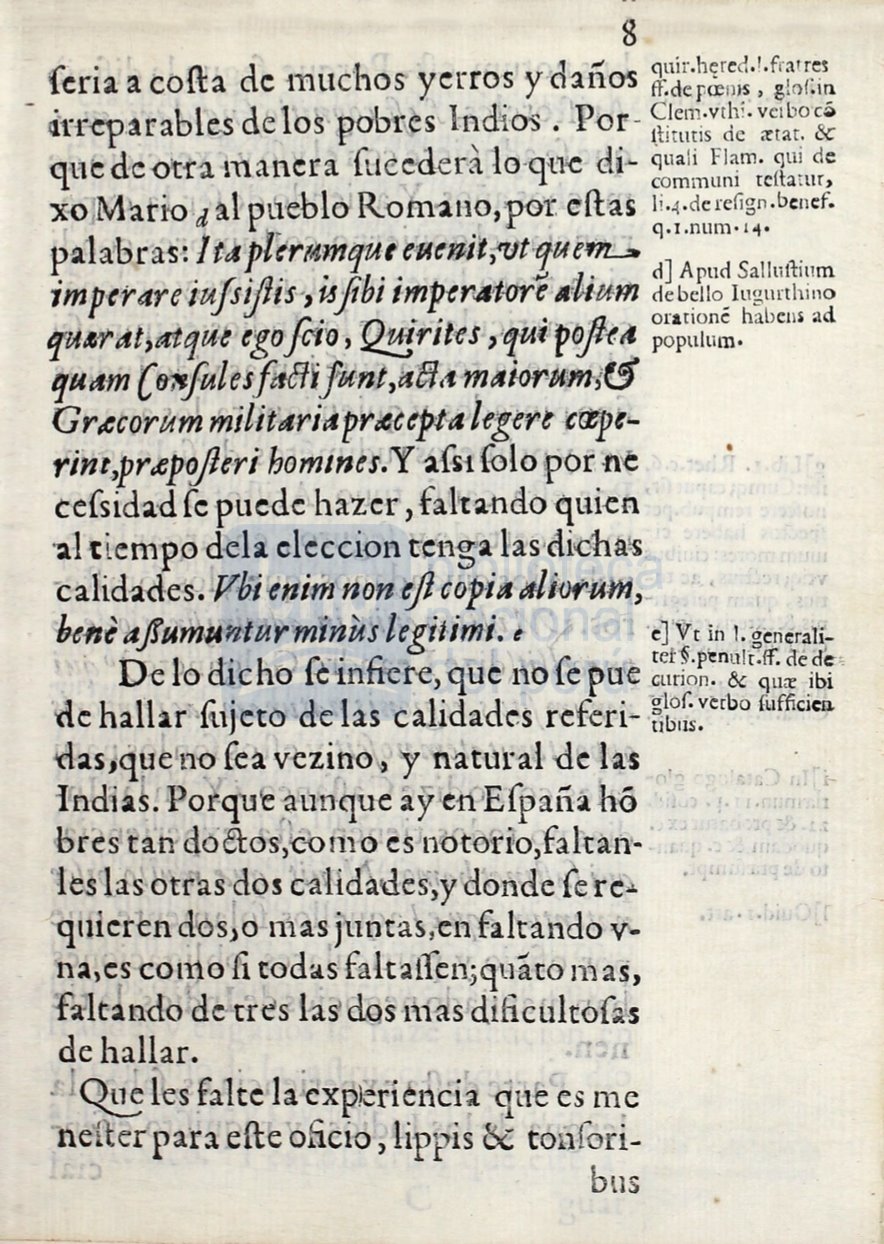 8
ſeria a coſta de muchos yerros y daños
irreparables de los pobres Indios. Por-
que de otra manera ſucederà lo que di-
xo Mario d al pueblo Romano, por eſtas
palabras: Ita plerumque euenit, vt quem
imperare iuſsiſtis, is ſibi imperatorē alium
quærat, atque ego ſcio, Quirites, qui poſtea
quam Conſules facti ſunt, acta maiorum, &
Græcorum militaria præcepta legere cœpe-
rint, præpoſteri homines. Y aſsi ſolo por ne
ceſsidad ſe puede hazer, faltando quien
al tiempo dela eleccion tenga las dichas
calidades. Vbi enim non eſt copia aliorum,
benè aſſumuntur minùs legitimi. e
De lo dicho ſe infiere, que no ſe pue
de hallar ſujeto de las calidades referi-
das, que no ſea vezino, y natural de las
Indias. Porque aunque ay en Eſpaña hō
bres tan doctos, como es notorio, faltan-
les las otras dos calidades, y donde ſe re-
quieren dos, o mas juntas, en faltando v-
na, es como ſi todas faltaſſen; quāto mas,
faltando de tres las dos mas dificultoſas
de hallar.
Que les falte la experiencia que es me
neſter para eſte oficio, lippis & tonſori-
bus
quir. hęred. l. fratres
ff. de pœnis, gloſ. in
Clem. vthi. verbo cō
ſtitutis de ætat. &
quali Flam. qui de
communi teſtatur,
li. 4. de reſign. benef.
q. 1. num. 14.
d] Apud Salluſtium
de bello Iugurthino
orationē habens ad
populum.
e] Vt in l. generali-
ter §. penult. ff. de de
curion. & quæ ibi
gloſ. verbo ſufficien
tibus.